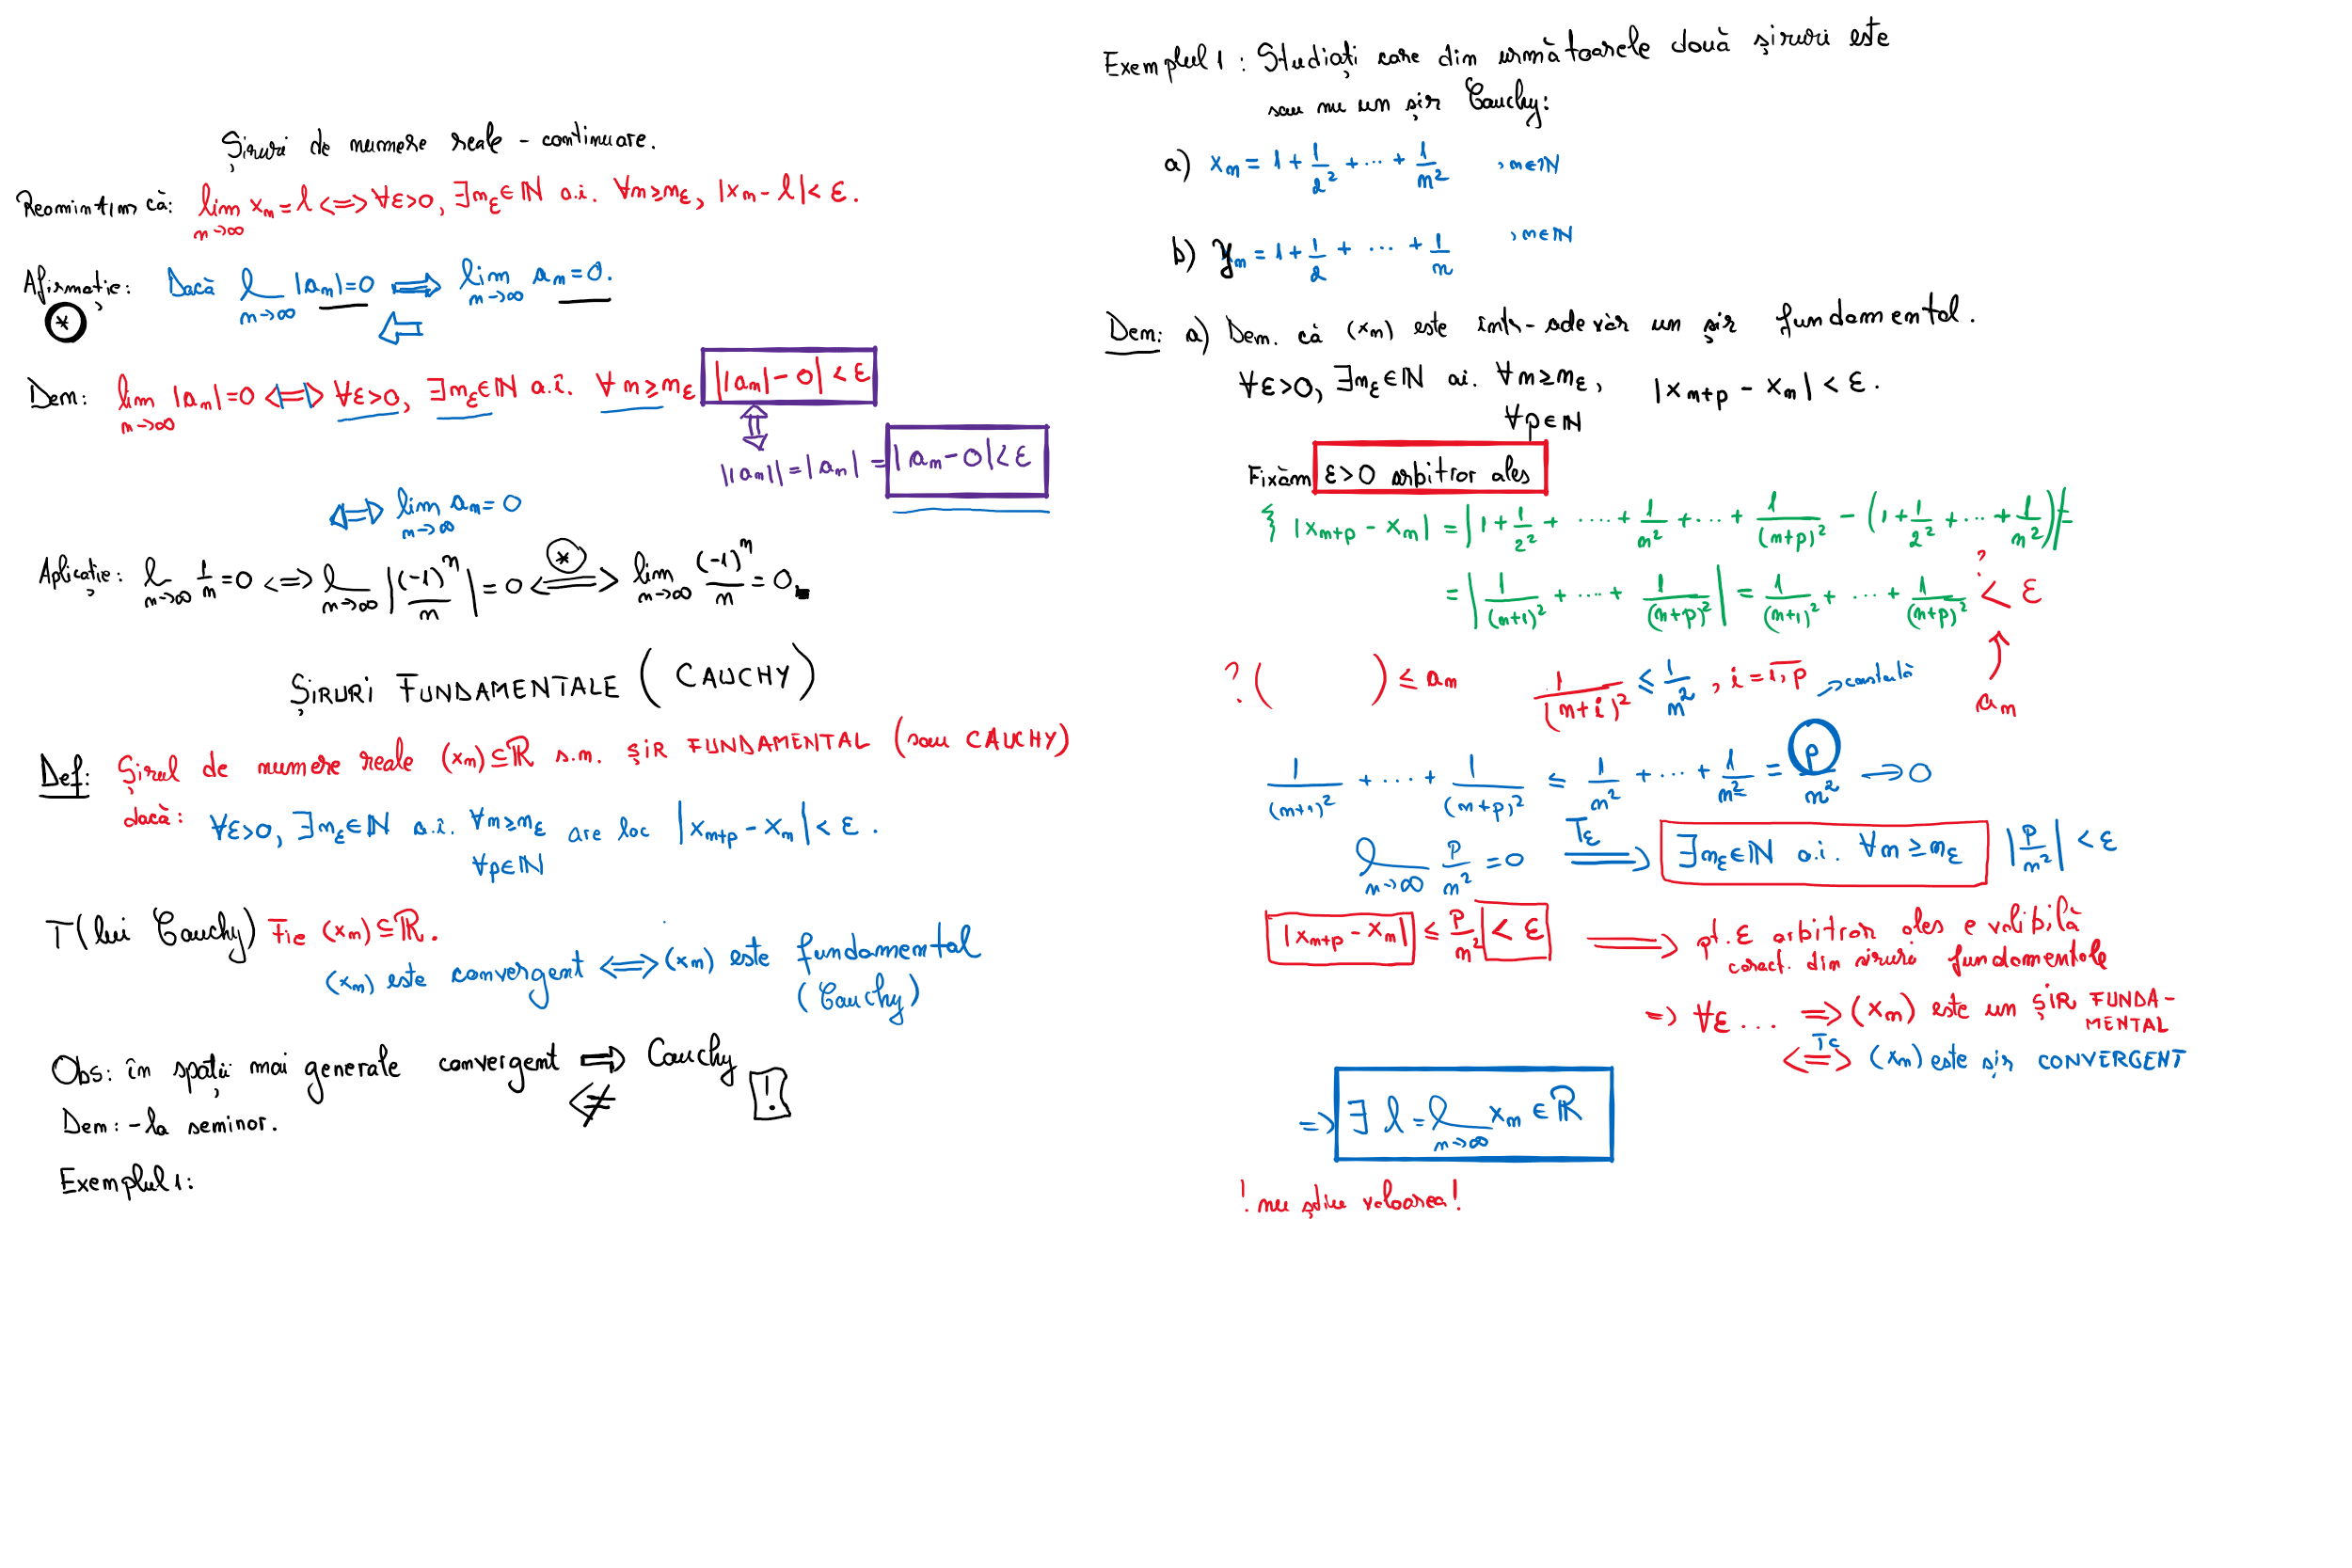 Șiruri de numere reale - continuare.
Reamintim că: lim_{n→∞} x_n = l <=> ∀ε>0, ∃n_ε∈ℕ a.i. ∀n≥n_ε, |x_n - l| < ε.
Afirmație: Dacă l_{n→∞} |a_n| = 0 ⟹ lim_{n→∞} a_n = 0.
(*) ⟸
Dem: lim_{n→∞} |a_n| = 0 <=> ∀ε>0, ∃n_ε∈ℕ a.î. ∀n≥n_ε ||a_n| - 0| < ε
⇕
||a_n|| = |a_n| = |a_n - 0| < ε
<=> lim_{n→∞} a_n = 0
Aplicație: l_{n→∞} 1/n = 0 <=> l_{n→∞} |(-1)^n / n| = 0 <=(*)=> lim_{n→∞} (-1)^n / n = 0.
ȘIRURI FUNDAMENTALE (CAUCHY)
Def: Șirul de numere reale (x_n) ⊆ ℝ s.n. ȘIR FUNDAMENTAL (sau CAUCHY)
dacă: ∀ε>0, ∃n_ε∈ℕ a.î. ∀n≥n_ε are loc |x_{n+p} - x_n| < ε.
∀p∈ℕ
T(lui Cauchy) Fie (x_n) ⊆ ℝ.
(x_n) este convergent <=> (x_n) este fundamental
(Cauchy)
Obs: în spații mai generale convergent ⟹ Cauchy
⇍ !
Dem: - la seminar.
Exemplul 1:
Exemplul 1: Studiați care din următoarele două șiruri este
sau nu un șir Cauchy:
a) x_n = 1 + 1/2² + ... + 1/n² , n∈ℕ
b) y_n = 1 + 1/2 + ... + 1/n , n∈ℕ
Dem: a) Dem. că (x_n) este într-adevăr un șir fundamental.
∀ε>0, ∃n_ε∈ℕ ai. ∀n≥n_ε, |x_{n+p} - x_n| < ε.
∀p∈ℕ
Fixăm ε>0 arbitrar ales
|x_{n+p} - x_n| = |1 + 1/2² + .... + 1/n² + ... + 1/(n+p)² - (1 + 1/2² + ... + 1/n²)| =
= |1/(n+1)² + ... + 1/(n+p)²| = 1/(n+1)² + ... + 1/(n+p)² <? ε
↑
a_n
? ( ) ≤ a_n 1/(n+i)² ≤ 1/n² , i = 1,p → constantă
1/(n+1)² + ... + 1/(n+p)² ≤ 1/n² + ... + 1/n² = p/n² → 0
l_{n→∞} p/n² = 0 =T_ε=> ∃n_ε∈ℕ a.i. ∀n≥n_ε |p/n²| < ε
|x_{n+p} - x_n| ≤ p/n² < ε ⟹ pt. ε arbitrar ales e valibilă
caract. din șiruri fundamentale
=> ∀ε ... => (x_n) este un ȘIR FUNDA-
MENTAL
<=Tc=> (x_n) este șir CONVERGENT
=> ∃ l = l_{n→∞} x_n ∈ ℝ
! nu știu valoarea!